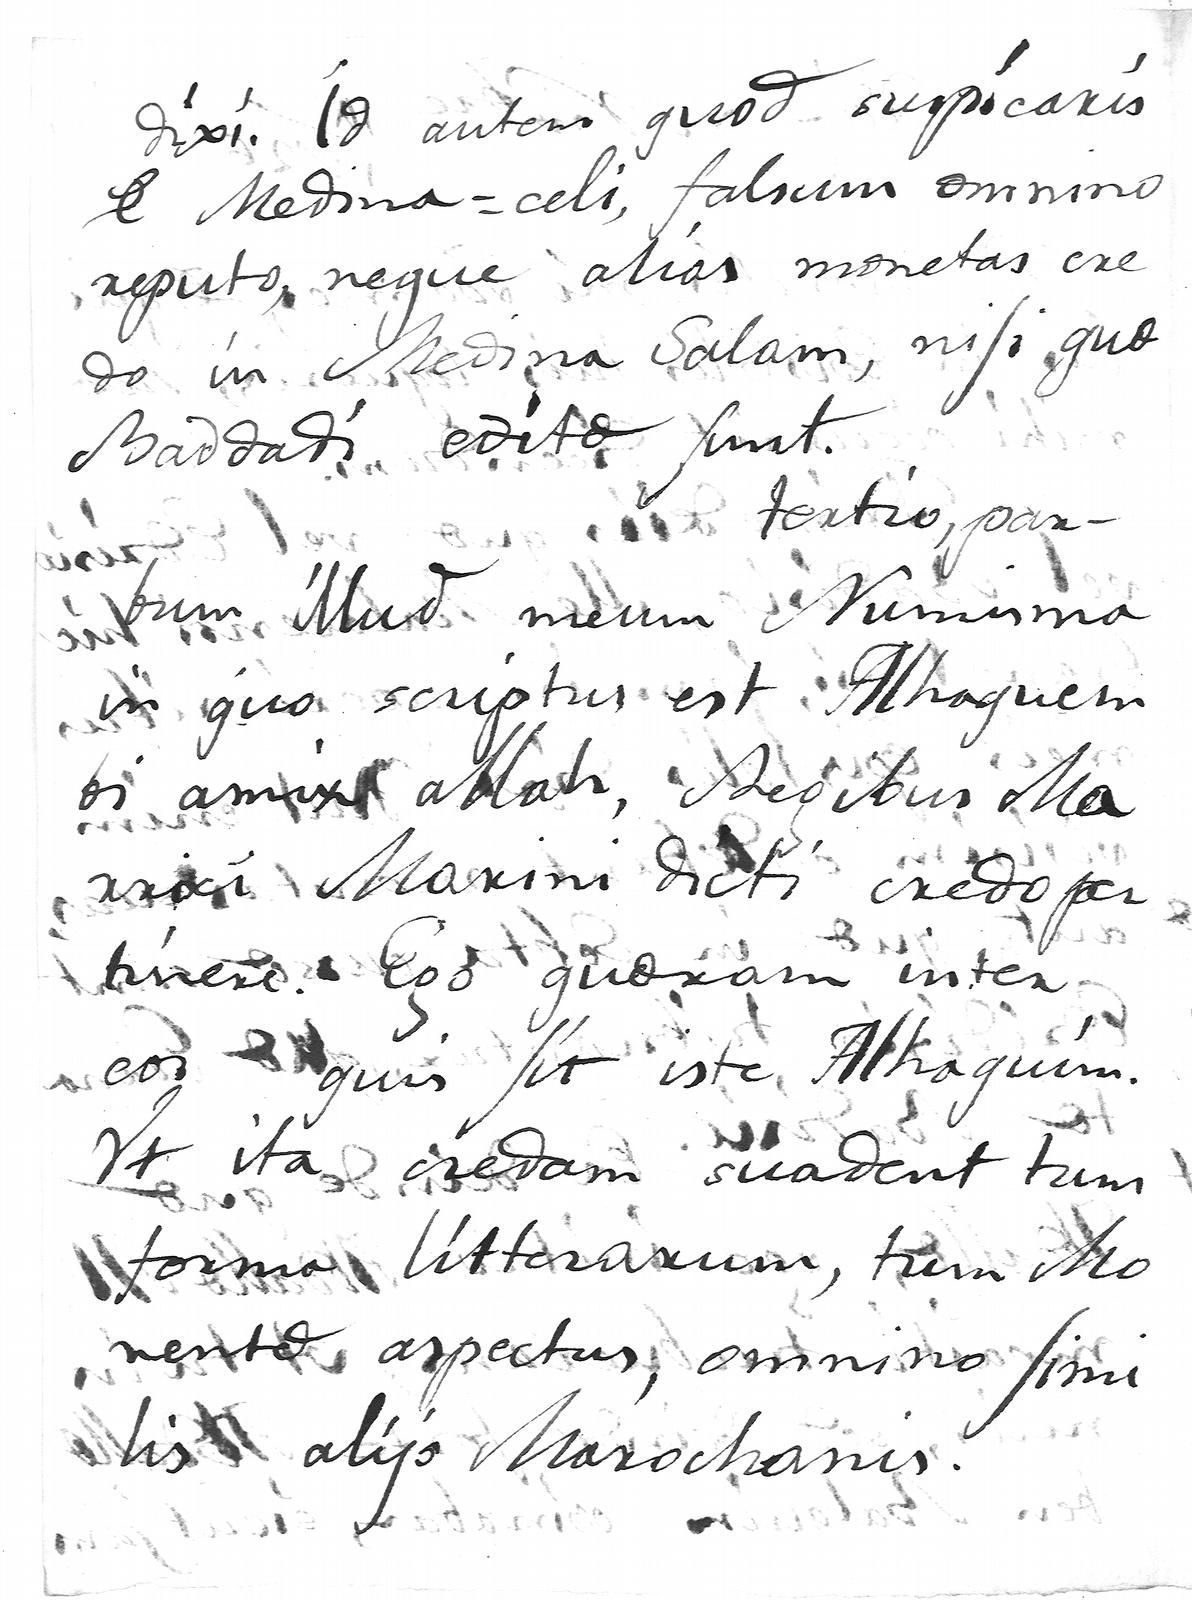 dixi. Id autem quod suspicaris
e Medina-celi, falsum omnino
reputo, neque alias monetas cre
do in Medina Salam, nisi quæ
Baddadi editæ sunt.
tertio, par-
bum illud meum Numisma
in quo scriptus est Alhaquem
bi amir allah, Regibus Ma
rroxi Marini dicti credo per
tinere. Ego quæram inter
eos quis sit iste Alhaquim.
Vt ita credam suadent tum
forma litterarum, tum Mo
nentæ aspectus, omnino simi
lis alijs Marochanis.